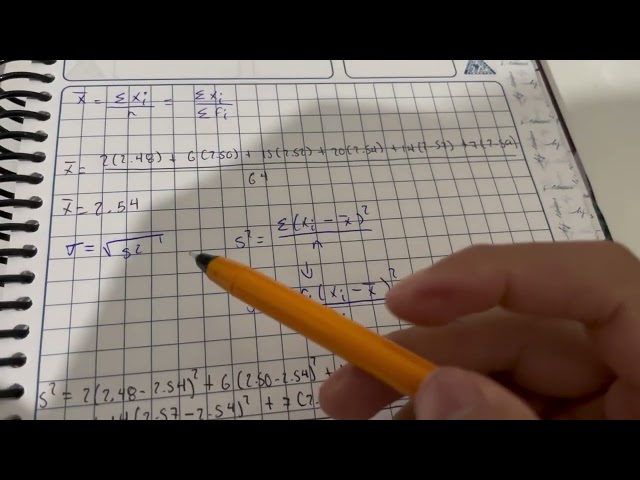 x̄ = Σxi/n = Σxi/Σfi
x̄ = 2(2.48) + 6(2.50) + 15(2.52) + 20(2.54) + 14(2.57) + 7(2.59)/64
x̄ = 2.54
σ = √s² s² = Σ(xi - x̄)²/n
↓
(xi - x̄)²
s² = 2(2.48 - 2.54)² + 6(2.50 - 2.54)² +
(2.57 - 2.54)² + 7(2.